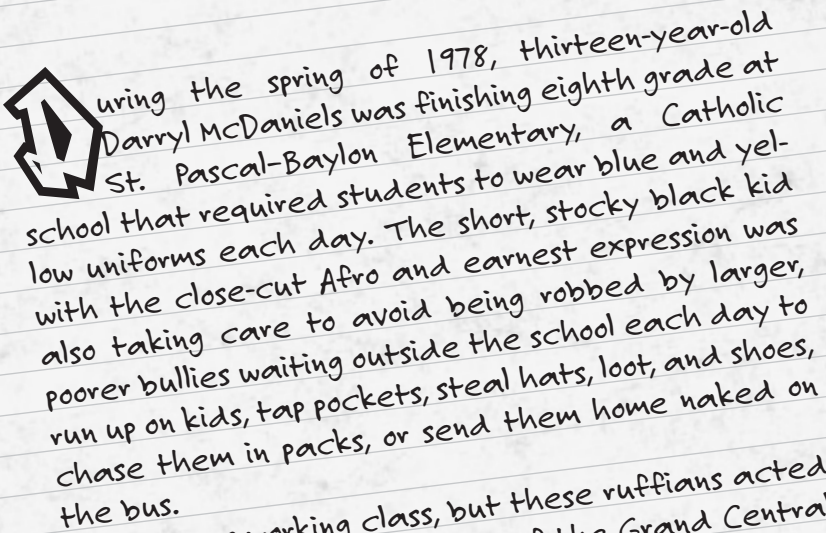 During the spring of 1978, thirteen-year-old
Darryl McDaniels was finishing eighth grade at
St. Pascal-Baylon Elementary, a Catholic
school that required students to wear blue and yel-
low uniforms each day. The short, stocky black kid
with the close-cut Afro and earnest expression was
also taking care to avoid being robbed by larger,
poorer bullies waiting outside the school each day to
run up on kids, tap pockets, steal hats, loot, and shoes,
chase them in packs, or send them home naked on
the bus.
working class, but these ruffians acted
of the Grand Central